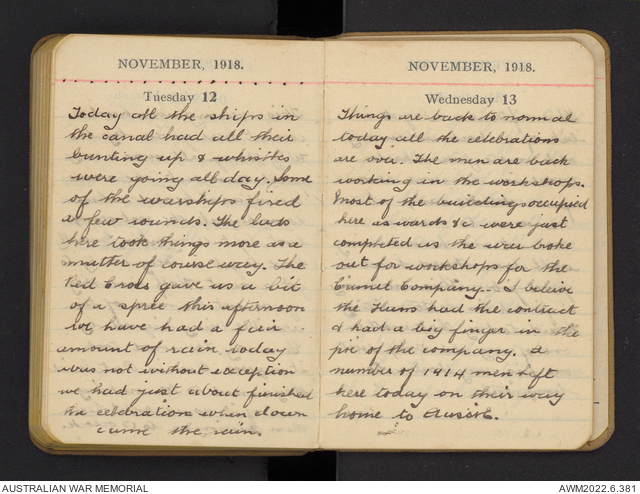 NOVEMBER, 1918.
Tuesday 12
Today all the ships in
the canal had all their
bunting up & whistles
were going all day. Some
of the warships fired
a few rounds. The lads
here took things more as a
matter of course way. The
Red Cross gave us a bit
of a spree this afternoon
we have had a fair
amount of rain today
was not without exception
we had just about finished
the celebrations when down
came the rain.
NOVEMBER, 1918.
Wednesday 13
Things are back to normal
today all the celebrations
are over. The men are back
working in the workshops.
Most of the buildings occupied
here as wards & c were just
completed as the war broke
out for workshops for the
Canal Company. I beleive
the Huns had the contract
& had a big finger in the
pie of the company. A
number of 1914 men left
here today on their way
home to Aussie.
AUSTRALIAN WAR MEMORIAL
AWM2022.6.381